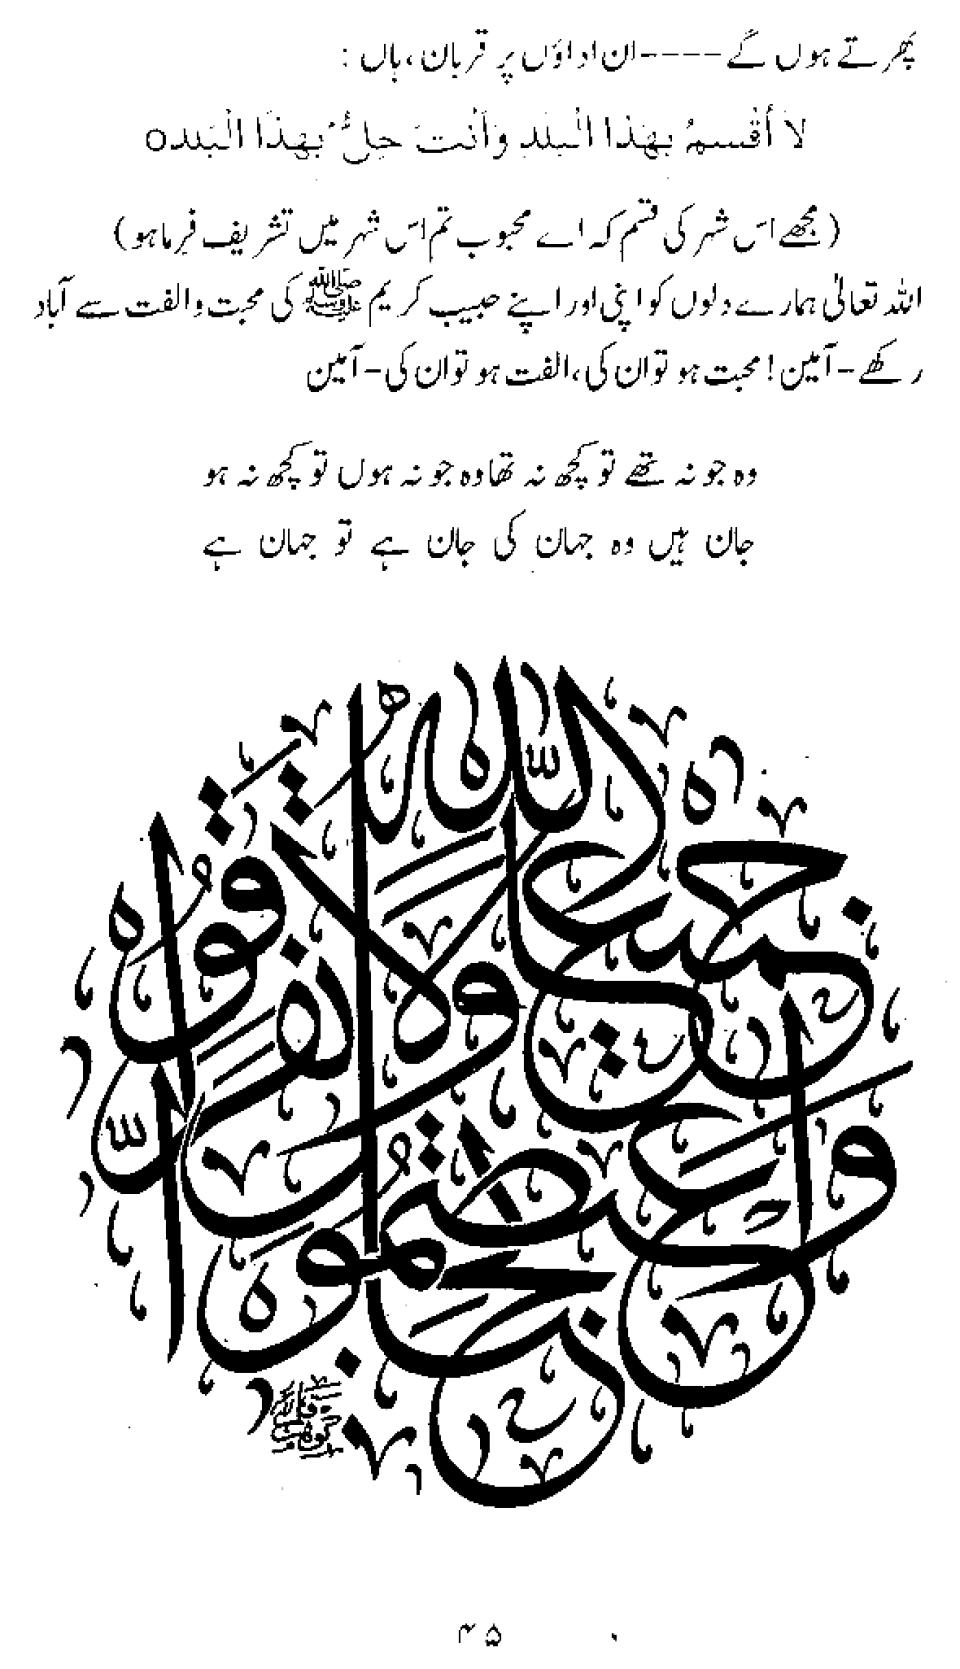 پھرتے ہوں گے ----ان اداؤں پر قربان، ہاں :
لَا أُقْسِمُ بِهٰذَا الْبَلَدِ وَأَنْتَ حِلٌّ ۢ بِهٰذَا الْبَلَدِ o
(مجھے اس شہر کی قسم کہ اے محبوب تم اس شہر میں تشریف فرما ہو)
اللہ تعالیٰ ہمارے دلوں کو اپنی اور اپنے حبیب کریم ﷺ کی محبت و الفت سے آباد
رکھے - آمین! محبت ہو تو ان کی، الفت ہو تو ان کی - آمین
وہ جو نہ تھے تو کچھ نہ تھا وہ جو نہ ہوں تو کچھ نہ ہو
جان ہیں وہ جہان کی جان ہے تو جہان ہے
واعتصموا بحبل الله جميعا ولا تفرقوا
۴۵